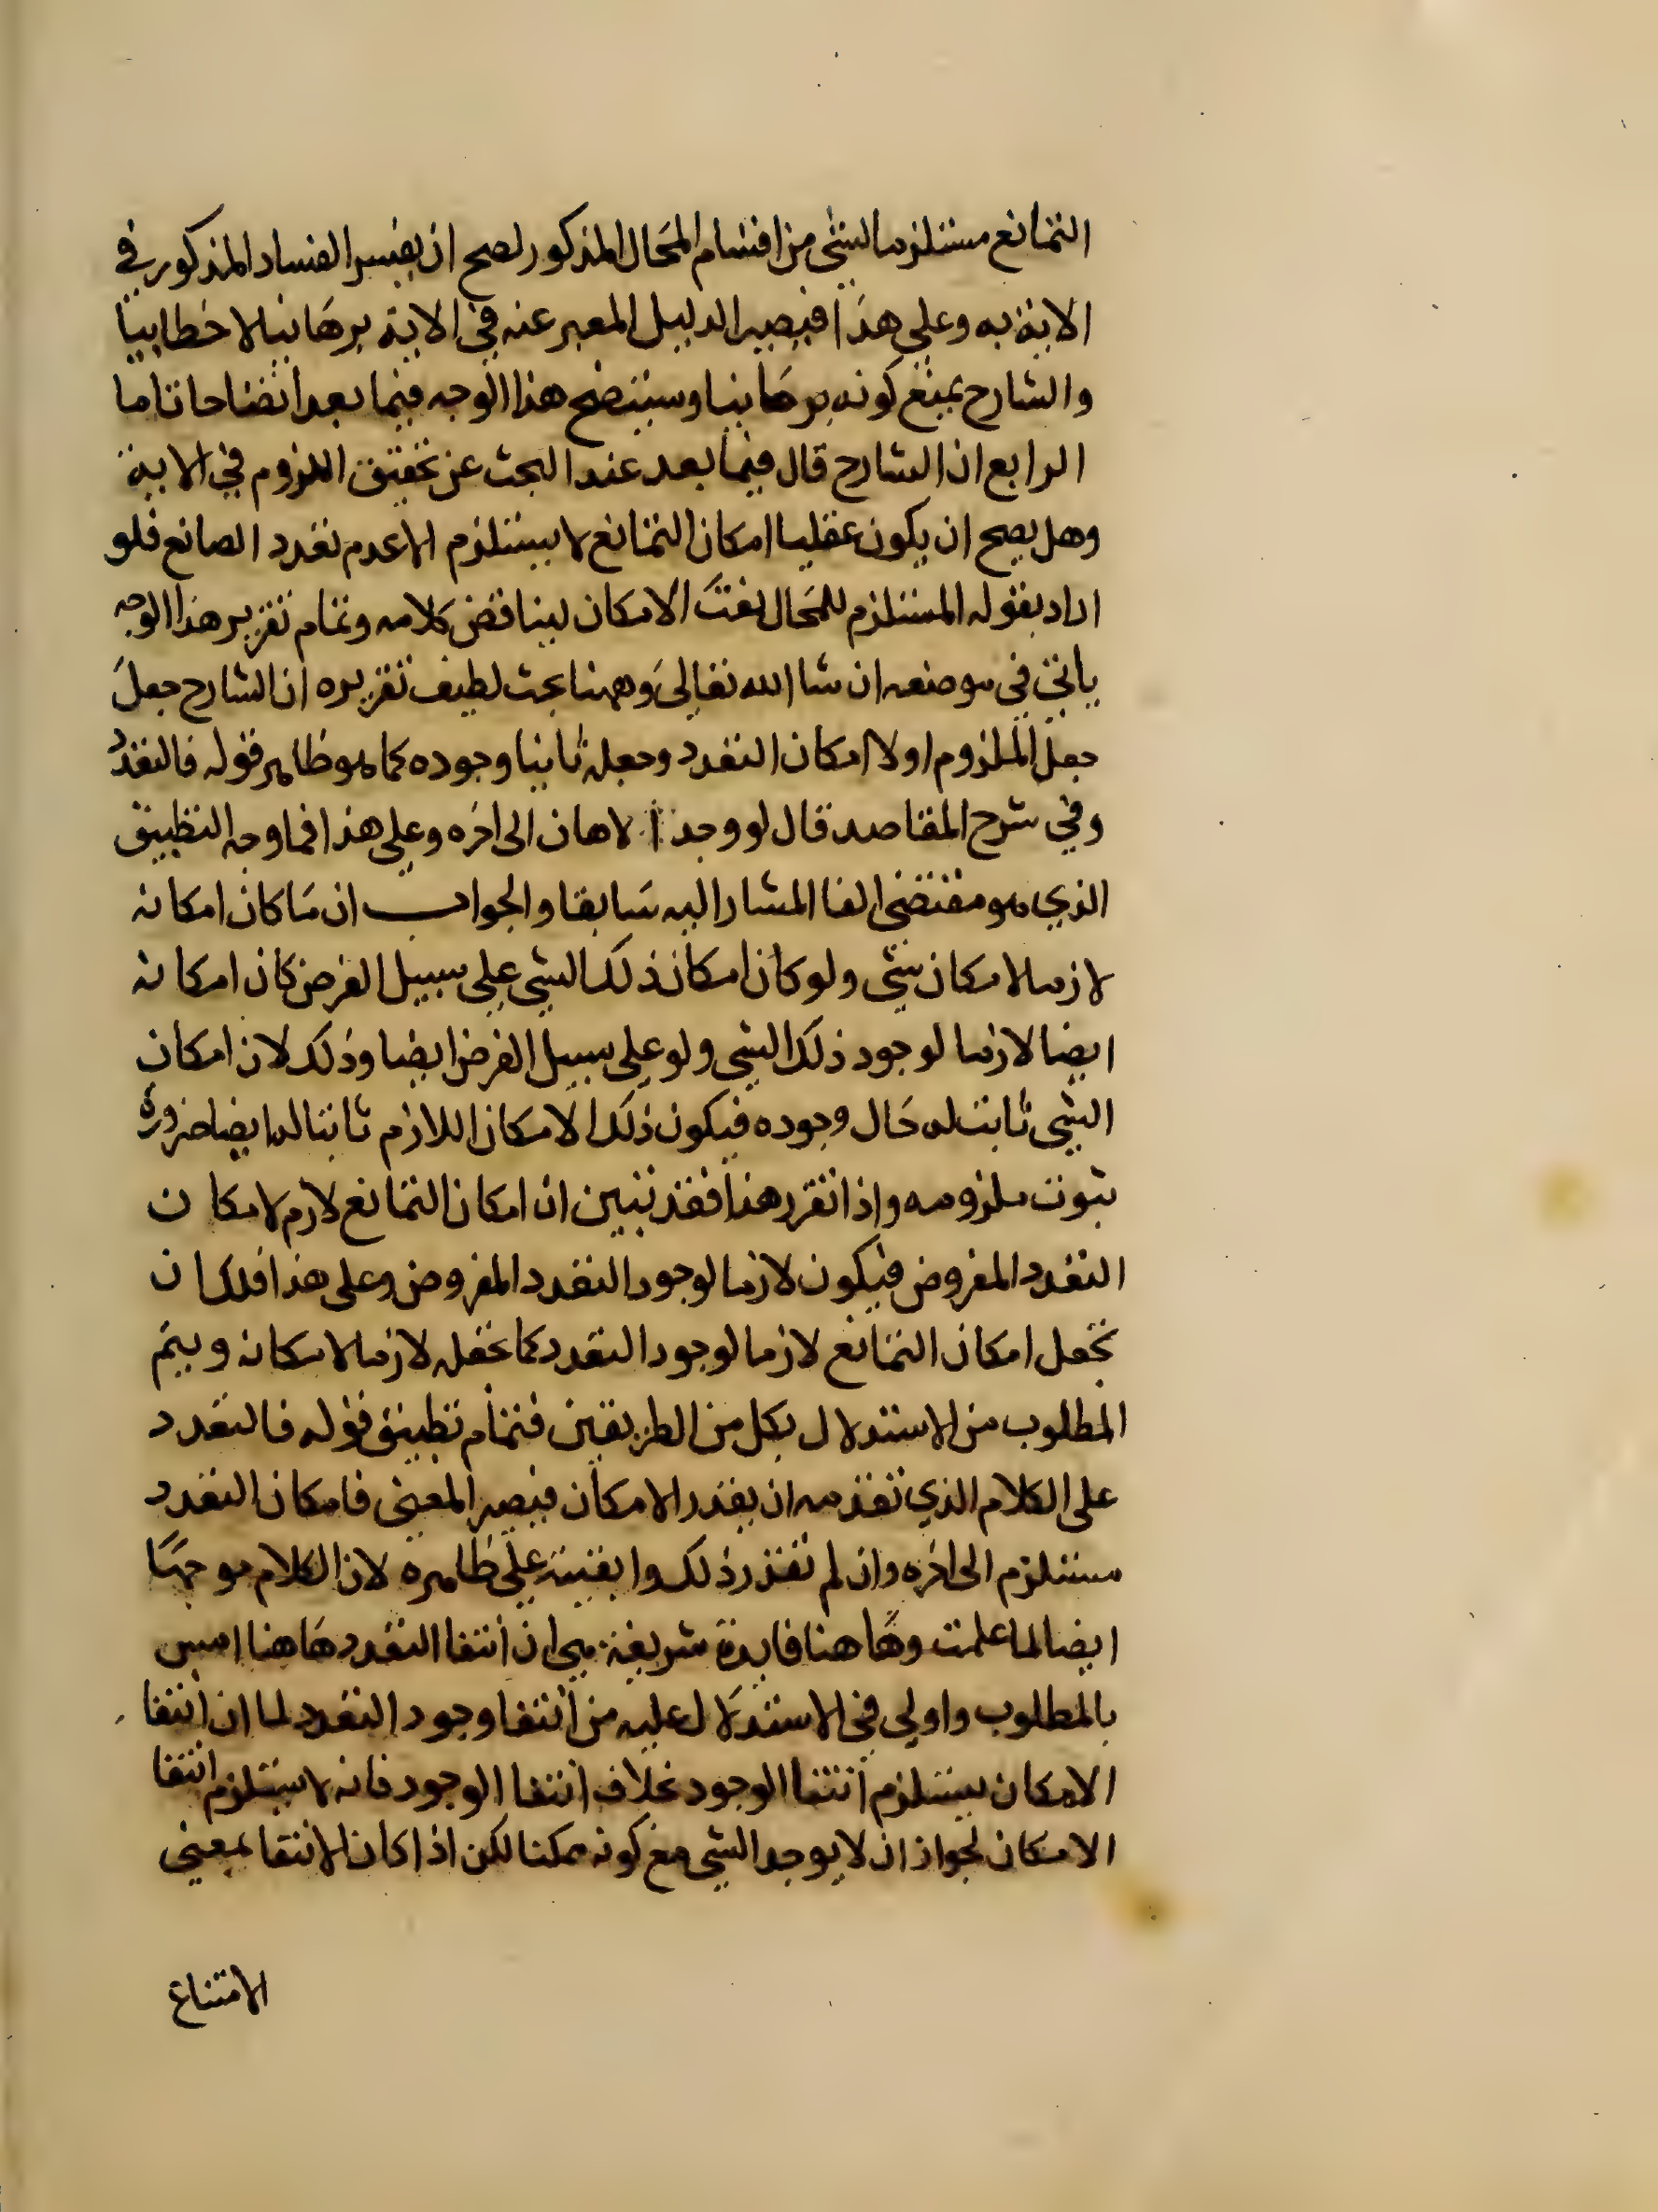 التمانع مستلزما لشي من اقسام المحال المذكور لصح ان يفسر الفساد المذكور في
الاية به وعلي هذا فيصير الدليل المعبر عنه في الاية برهانيا لا خطابيا
والشارح يمنع كونه برهانيا وسيتضح هذا الوجه فيما بعد اتضاحا تاما
الرابع ان الشارح قال فيما بعد عند البحث عن تحقيق اللزوم في الاية
وهل يصح ان يكون عقليا امكان التمانع لا يستلزم الا عدم تعدد الصانع فلو
اراد بقوله المستلزم للمحال نعت الامكان لينا قض كلامه وتمام تقرير هذا الوجه
ياتي في موضعه ان شا الله تعالي وههنا بحث لطيف تقريره ان الشارح جعل
جعل الملزوم اولا امكان التعدد وجعله ثانيا وجوده كما هو ظاهر قوله فالتعدد
وفي شرح المقاصد قال لو وجد الاهان الى اخره وعلي هذا فما وجه التطبيق
الذي هو مقتضي الفا المشار اليه سابقا والجواب ان ما كان امكانه
لازما لامكان شي ولو كان امكان ذلك الشي علي سبيل الفرض كان امكانه
ايضا لازما لوجود ذلك الشي ولو علي سبيل الفرض ايضا وذلك لان امكان
الشي ثابت له حال وجوده فيكون ذلك الامكان اللازم ثابتا له ايضا ضرورة
ثبوت ملزومه واذا تقرر هذا فقد تبين ان امكان التمانع لازم لامكان
التعدد المفروض فيكون لازما لوجود التعدد المفروض وعلى هذا فلك ان
تجعل امكان التمانع لازما لوجود التعدد كما تجعله لازما لامكانه ويتم
المطلوب من الاستدلال بكل من الطريقين فتمام تطبيق قوله فالتعدد
على الكلام الذي تقدمه ان يقدر الامكان فيصير المعني فامكان التعدد
مستلزم الى اخره وان لم تقدر ذلك وابقيته علي ظاهره لان الكلام موجها
ايضا لما علمت وها هنا فايدة شريفة هي ان انتفا التعدد ها هنا امس
بالمطلوب واولي في الاستدلال عليه من انتفا وجود التعدد لما ان انتفا
الامكان يستلزم انتفا الوجود بخلاف انتفا الوجود فانه لا يستلزم انتفا
الامكان لجواز ان لا يوجد الشي مع كونه ممكنا لكن اذا كان الانتفا بمعني
الامتناع